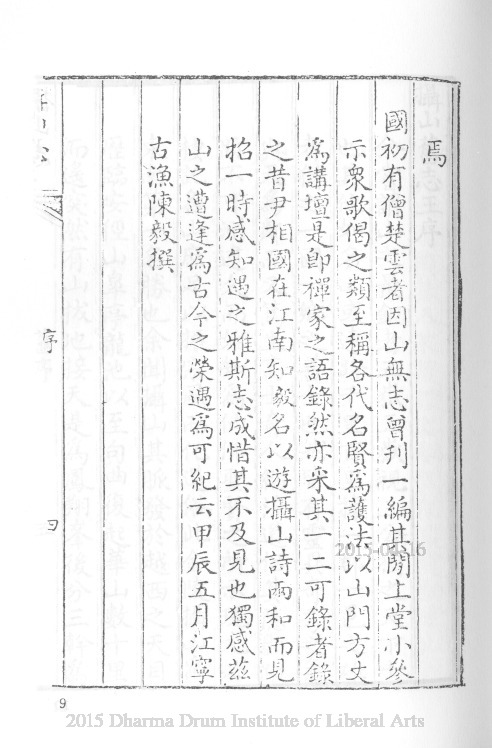 焉
國初有僧楚雲者因山無志曾刊一編其間上堂小參
示眾歌偈之類至稱各代名賢為護法以山門方丈
為講壇是即禪家之語錄然亦采其一二可錄者錄
之昔尹相國在江南知毅名以遊攝山詩兩和而見
招一時感知遇之雅斯志成惜其不及見也獨感茲
山之遭逢為古今之榮遇為可紀云甲辰五月江寧
古漁陳毅撰
序
四
9
2015-04-16
2015 Dharma Drum Institute of Liberal Arts